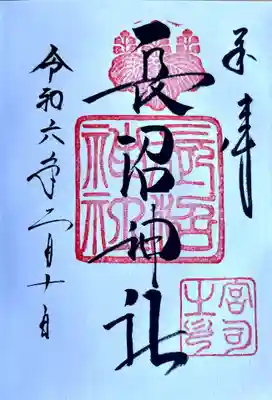 奉拝
長沼神社
令和六年二月十日
長沼神社
宮司之印